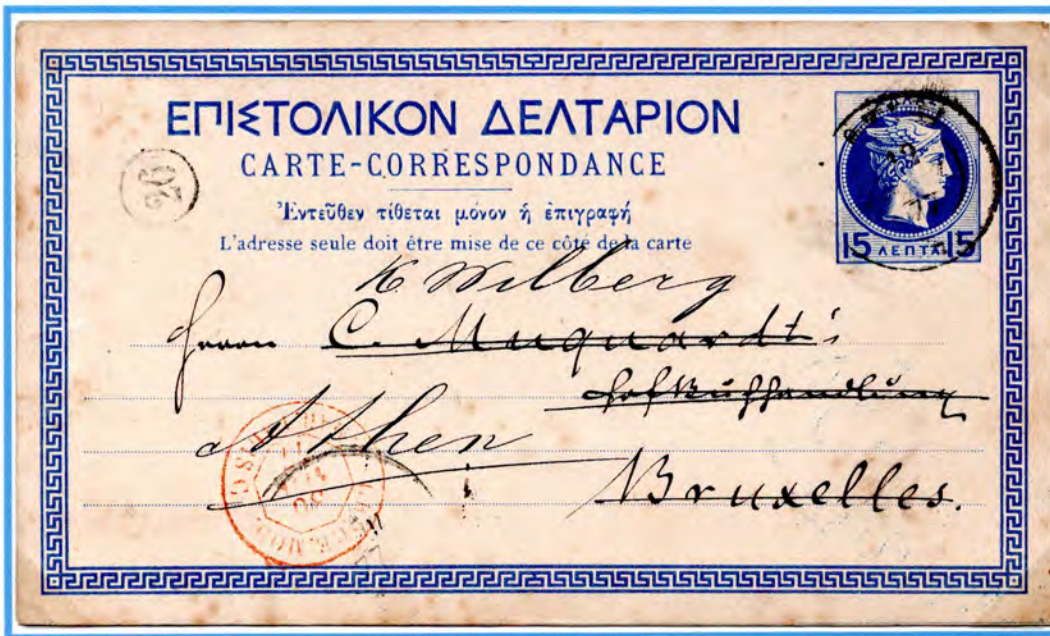 ΕΠΙΣΤΟΛΙΚΟΝ ΔΕΛΤΑΡΙΟΝ
CARTE-CORRESPONDANCE
Ἐντεῦθεν τίθεται μόνον ἡ ἐπιγραφή
L'adresse seule doit être mise de ce côté de la carte
15 ΛΕΠΤΑ 15
K Wilberg
Herrn C. Muquardt's
Hofbuchhandlung
Athen
Bruxelles.